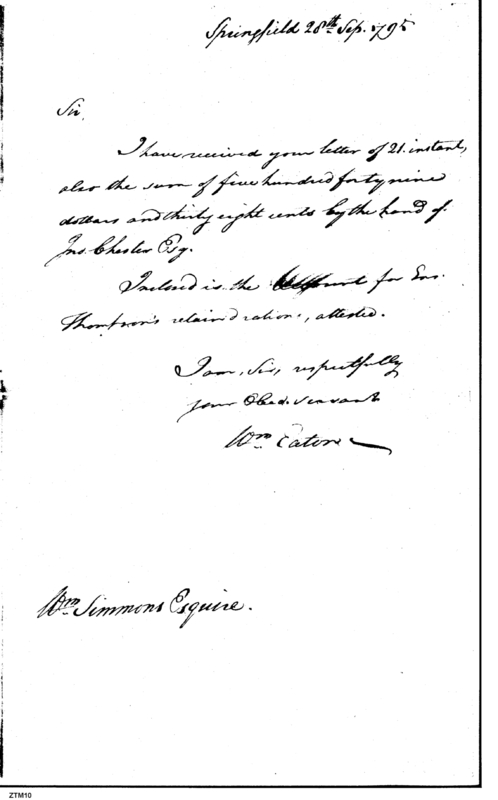 Springfield 28th Sep. 1795
Sir,
I have received your letter of 21. instant,
also the sum of five hundred forty nine
dollars and thirty eight cents by the hand of
Jno. Chester Esq.
Inclosed is the Account for Ens.
Thompson's retained rations, attested.
I am, Sir, respectfully
your Obed. servant
Wm Eaton
Wm Simmons Esquire.
ZTM10